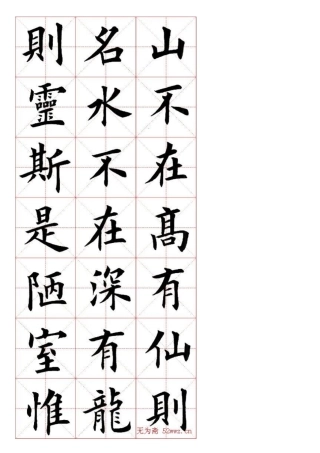 山不在髙有仙則
名水不在深有龍
則靈斯是陋室惟
无为斋 52wwz.cn